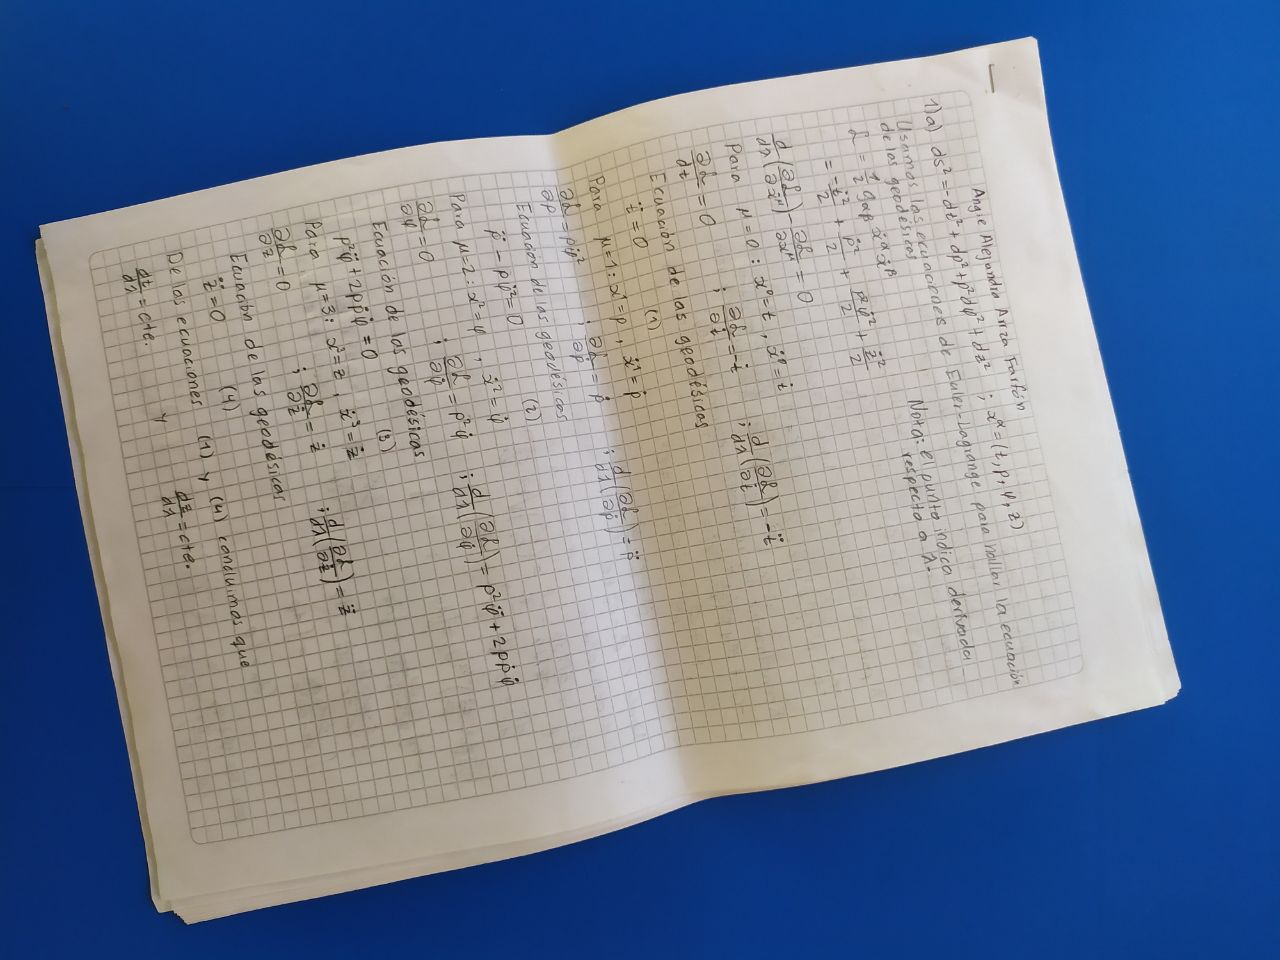 Angie Alejandra Ariza Farfón
1) a) ds² = -dt² + dρ² + ρ²dφ² + dz² ; xᵅ = (t, ρ, φ, z)
Usamos las ecuaciones de Euler-Lagrange para hallar la ecuación
de las geodésicas
Nota: el punto indica derivada
respecto a λ.
ℒ = 1/2 gαβ ẋᵅẋᵝ
= -ṫ²/2 + ρ̇²/2 + ρ²φ̇²/2 + ż²/2
d/dλ (∂ℒ/∂ẋᵘ) - ∂ℒ/∂xᵘ = 0
Para μ=0 : x⁰ = t , ẋ⁰ = ṫ
∂ℒ/dt = 0 ; ∂ℒ/∂ṫ = -ṫ ; d/dλ (∂ℒ/∂ṫ) = -ẗ
Ecuación de las geodésicas
ẗ = 0 (1)
Para μ=1 : x¹ = ρ , ẋ¹ = ρ̇
∂ℒ/∂ρ = ρφ̇² ; ∂ℒ/∂ρ̇ = ρ̇ ; d/dλ (∂ℒ/∂ρ̇) = ρ̈
Ecuación de las geodésicas
ρ̈ - ρφ̇² = 0 (2)
Para μ=2 : x² = φ , ẋ² = φ̇
∂ℒ/∂φ = 0 ; ∂ℒ/∂φ̇ = ρ²φ̇ ; d/dλ (∂ℒ/∂φ̇) = ρ²φ̈ + 2ρρ̇φ̇
Ecuación de las geodésicas
ρ²φ̈ + 2ρρ̇φ̇ = 0 (3)
Para μ=3 : x³ = z , ẋ³ = ż
∂ℒ/∂z = 0 ; ∂ℒ/∂ż = ż ; d/dλ (∂ℒ/∂ż) = z̈
Ecuación de las geodésicas
z̈ = 0 (4)
De las ecuaciones (1) y (4) concluimos que
dt/dλ = cte. y dz/dλ = cte.